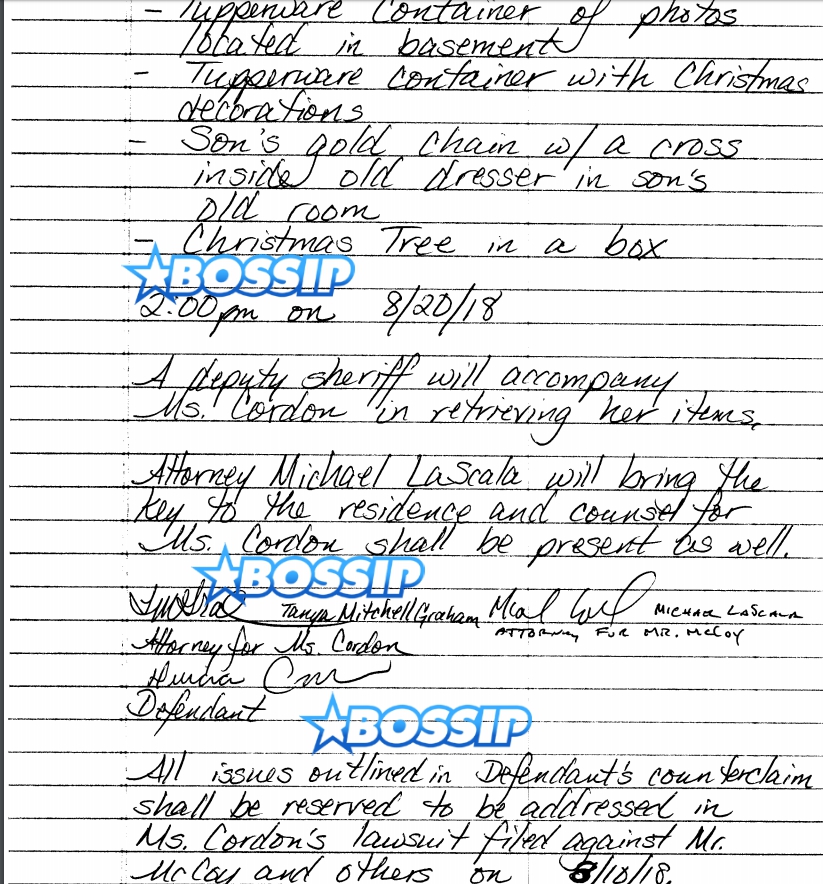 - Tupperware Container of photos
located in basement
- Tupperware container with Christmas
decorations
- Son's gold chain w/ a cross
inside old dresser in son's
old room
- Christmas Tree in a box
BOSSIP
2:00pm on 8/20/18
A deputy sheriff will accompany
Ms. Cordon in retrieving her items.
Attorney Michael LaScala will bring the
key to the residence and counsel for
Ms. Cordon shall be present as well.
BOSSIP
Tanya Mitchell Graham MICHAEL LASCALA
ATTORNEY FOR MR. MCCOY
Attorney for Ms. Cordon
Defendant
BOSSIP
All issues outlined in Defendant's counterclaim
shall be reserved to be addressed in
Ms. Cordon's lawsuit filed against Mr.
McCoy and others on 8/10/18.